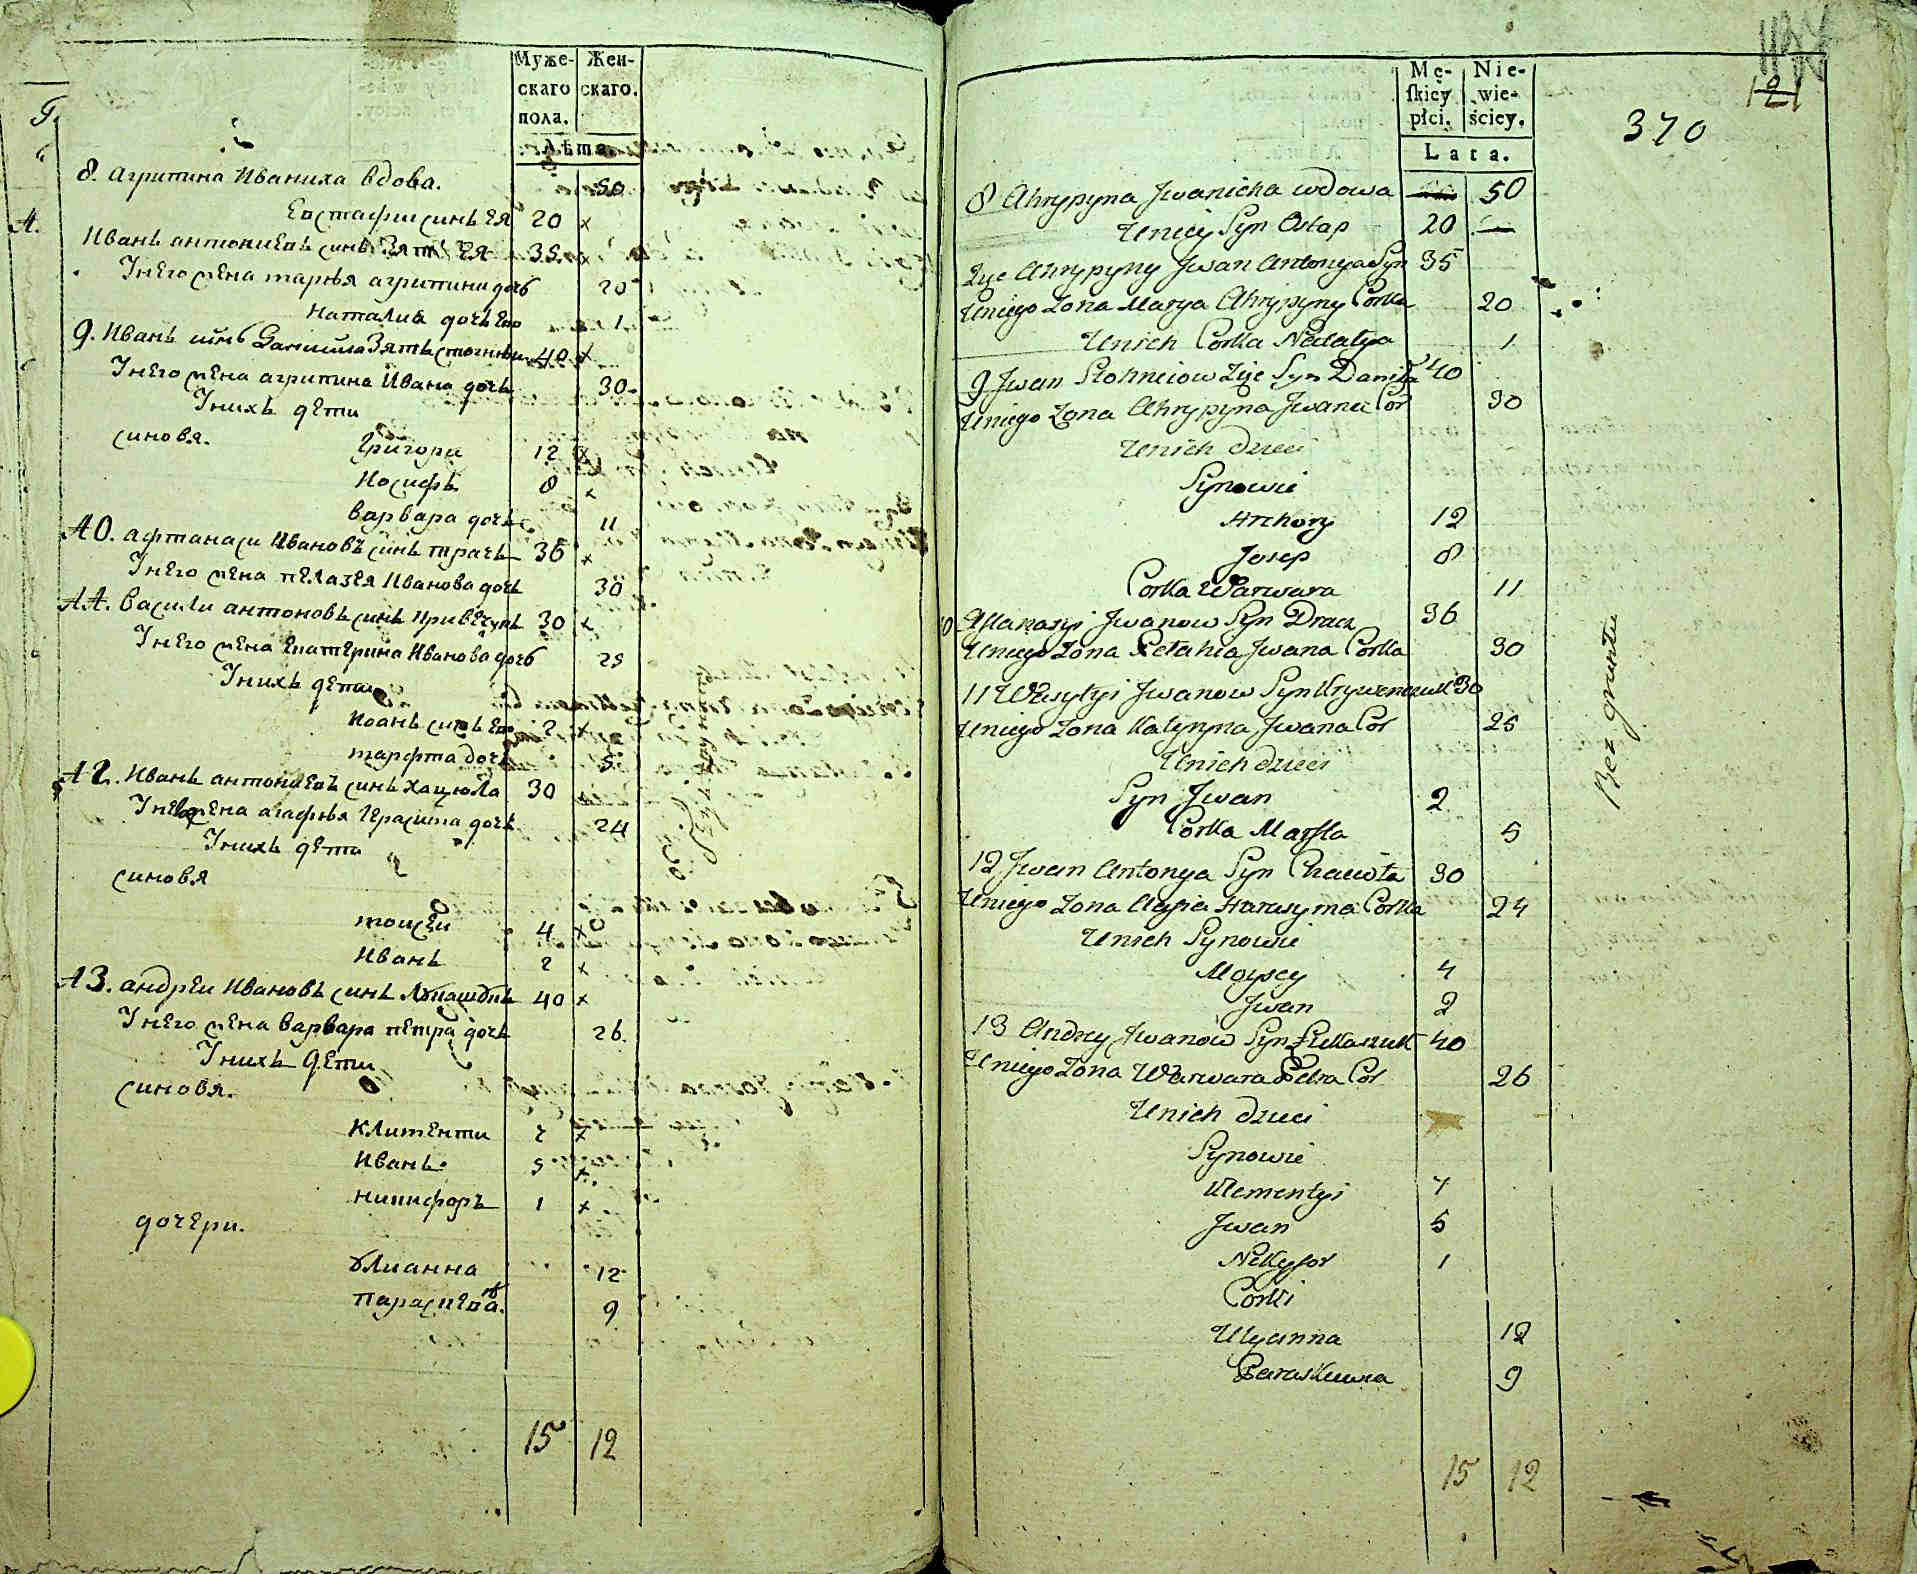 Муже-
скаго
пола.
Жен-
скаго.
Лѣта.
8. Агрипина Иваниха вдова. 50
Евстафии синъ ея 20 x
Иванъ антониевъ синъ Зять Ея 35
Унего жена марья агрипини дочь 20
Наталиа дочь Его 1
9. Иванъ синъ Данишла Зять 40 x
Унего жена агрипина Ивана дочь 30
Унихъ дети
синовя.
Григори 12 x
Иосифъ 8 x
варвара дочь 11
10. афтанаси Ивановъ синъ трачь 36 x
Унего жена пелагея Иванова дочь 30
11. Васили антоновъ синъ 30 x
Унего жена Екатерина Иванова дочь 25
Унихъ дети
Иоанъ синъ Его 2 x
марфта дочь 5
12. Иванъ антониевъ синъ Хацюла 30
жена агафья Герасима дочь 24
Унихъ дети
синовя
моисеи 4 x
Иванъ 2 x
13. андреи Ивановъ синъ 40 x
Унего жена варвара петра дочь 26.
Унихъ Дети
синовя.
Климентии 7 x
Иванъ 5 x
никифоръ 1 x
дочери.
Улианна 12
параскева. 9
15 12
Mę-
ſkiey
płci.
Nie-
wie-
ściey.
Lata.
370
8 Ahrypyna Jwanicha wdowa 50
Uniey Syn Ostap 20
Zyć Ahrypyny Jwan Antonya Syn 35
Uniego Zona Marya Ahrypyny Corka 20
Unich Corka Natalya 1
9 Jwan Zyć Syn Daniła 40
Uniego Zona Ahrypyna Jwana Cor 30
Unich dzieci
Synowie
Hrehory 12
Josep 8
Corka Warwara 11
10 Aftanasyi Jwanow Syn Dracz 36
Uniego Zona Pelahia Jwana Corka 30
11 Wasylyi Jwanow Syn 30
Uniego Zona Katyryna Jwana Cor 25
Unich dzieci
Syn Jwan 2
Corka Marfta 5
12 Jwan Antonya Syn Chaciuła 30
Uniego Zona Harasyma Corka 24
Unich Synowie
Moysey 4
Jwan 2
13 Andrey Jwanow Syn Łukaszuk 40
Uniego Zona Warwara Petra Cor 26
Unich dzieci
Synowie
Klementyi 7
Jwan 5
Nikyfor 1
Corki
Ulyanna 12
Paraskiewia 9
15 12
Bez gruntu